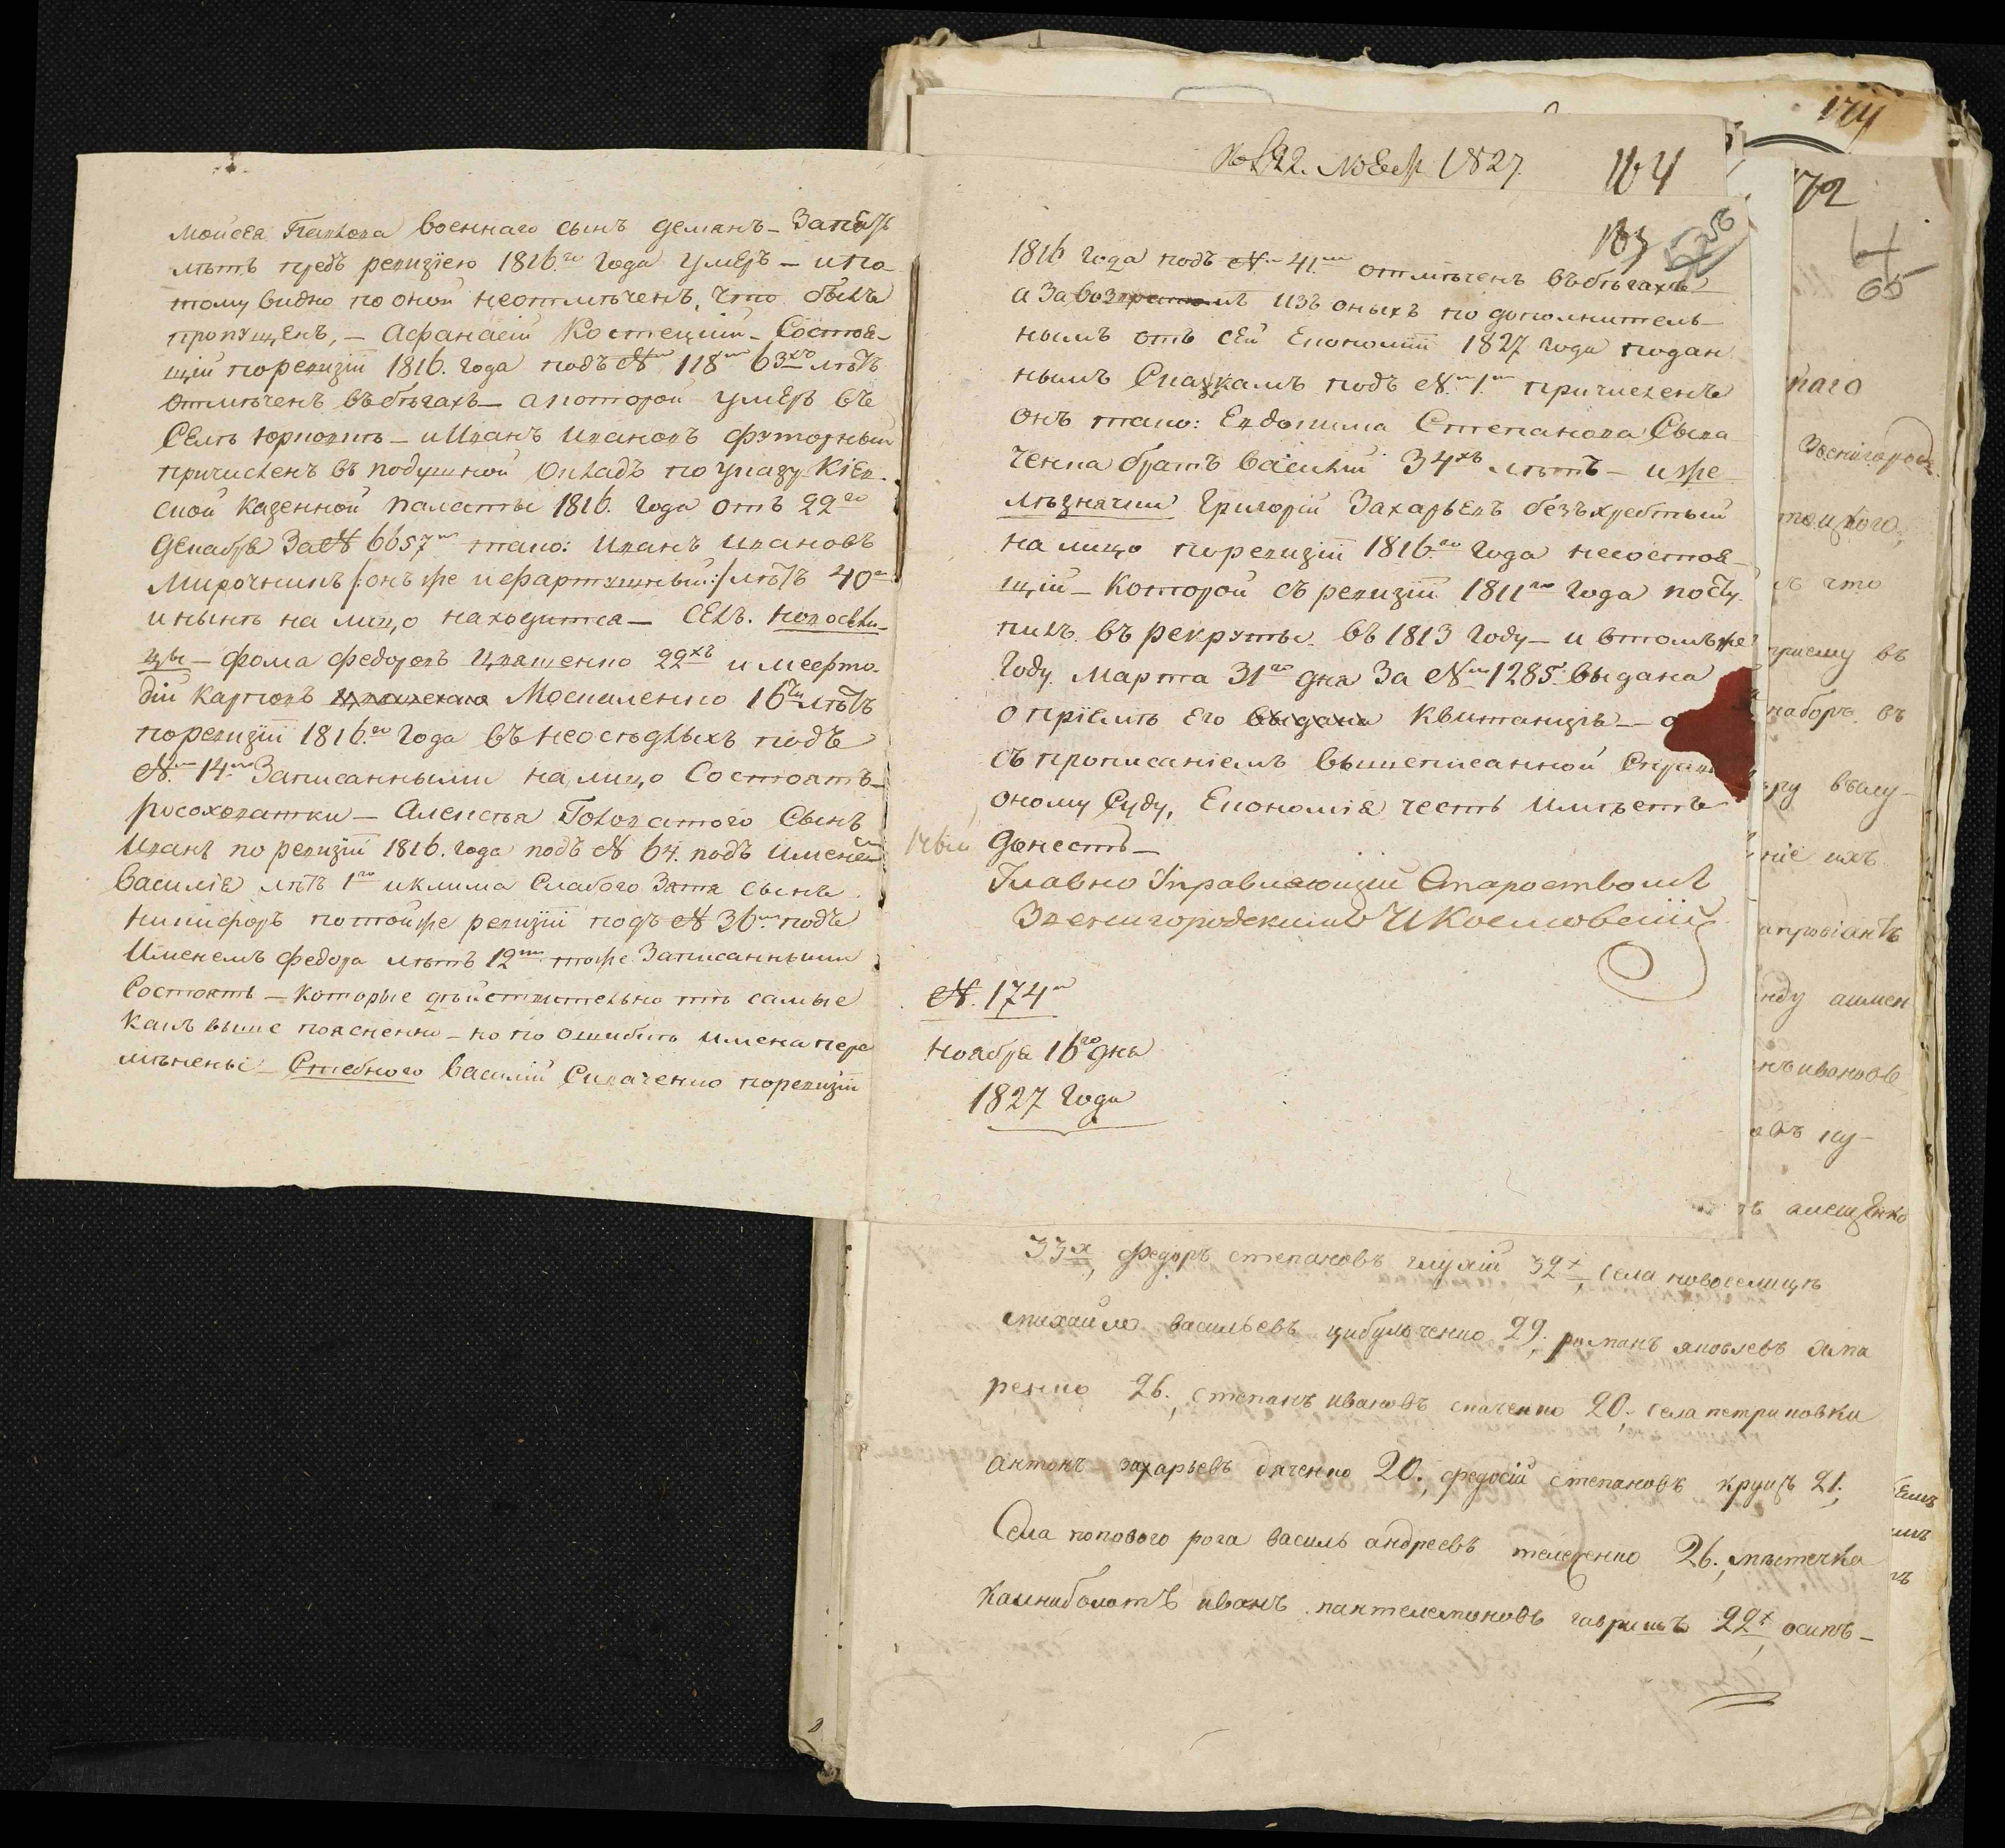 Моисея Павлова военнаго сынъ Демянъ – За пять
лѣтъ предъ ревизіею 1816.го года умеръ – и по
тому видно по оной неотмѣченъ, что былъ
пропущенъ, – Афанасій Костецкій – Состоя-
щій по ревизіи 1816. года подъ № 118м 63хъ лѣтъ
отмѣченъ въ бѣгахъ – а которой умеръ въ
Селѣ Юрковкѣ – и Иванъ Ивановъ Футорный
причисленъ въ подушной окладъ по указу Кіев-
ской казенной палаты 1816. года отъ 22го
Декабря За № 6657м тако: Иванъ Ивановъ
Мирочникъ /: онъ же и фартушный :/ лѣтъ 40
и нынѣ на лицо находится – Селъ. Новосели-
цы – Фома Федоровъ Ивашенко 22хъ и Меефто-
дій Карповъ Москаленко 16ти лѣтъ
по ревизіи 1816.го года въ неосѣдлыхъ подъ
№м 14.мъ Записанными на лицо Состоятъ –
росоховатки – Алексѣя Головатого Сынъ
Иванъ по ревизіи 1816. года подъ № 64. подъ именемъ
Василія лѣтъ 1го и Клима Слабого Зятя сынъ
Никифоръ по той же ревизіи подъ № 36.мъ подъ
Именемъ Федора лѣтъ 12ти тоже Записанными
Состоятъ – которые дѣйствительно тѣ самые
какъ выше пояснено – но по ошибкѣ имена пере
мѣнены – Стебного Василій Сикаченко по ревизіи
1827.
164
163
1816 года подъ №м 41.мъ отмѣченъ въ бѣгахъ –
а За возвратомъ изъ оныхъ по дополнитель-
нымъ отъ сей Економіи 1827 года подан
нымъ Сказкамъ подъ №м 1.м причисленъ
онъ тако: Евдокима Степанова Сыка
ченка братъ Василій 34хъ лѣтъ – и же
лѣзнячки Григорій Захарьевъ безъхребтый
на лицо по ревизіи 1816.го года несостоя-
щій – Которой съ ревизіи 1811го года посту
пилъ въ рекруты въ 1813 году – и втомъ же
году Марта 31го дня За №м 1285. выдана
о пріемѣ его выдана квитанція –
съ прописаніемъ вышеписанной
оному Суду, Економія честь имѣетъ
донесть –
Главно Управляющій Староствомъ
Звенигородскимъ
№. 174м
Ноября 16го дня
1827 года
174
172
65
Звенигород
что
приему въ
наборъ въ
ніе ихъ
ивановъ
33х, федоръ степановъ глухій 32х, села новоселицъ
михайло васильевъ цибульченко 29. романъ яковлевъ
ренко 26., степанъ ивановъ скаченко 20., села петриковки
антонъ захарьевъ дяченко 20., федосій степановъ круцъ 21.,
Села попового рога василь андреевъ тележенко 26., мѣстечка
калниболотъ иванъ пантелемоновъ гавришъ 22х, осипъ –